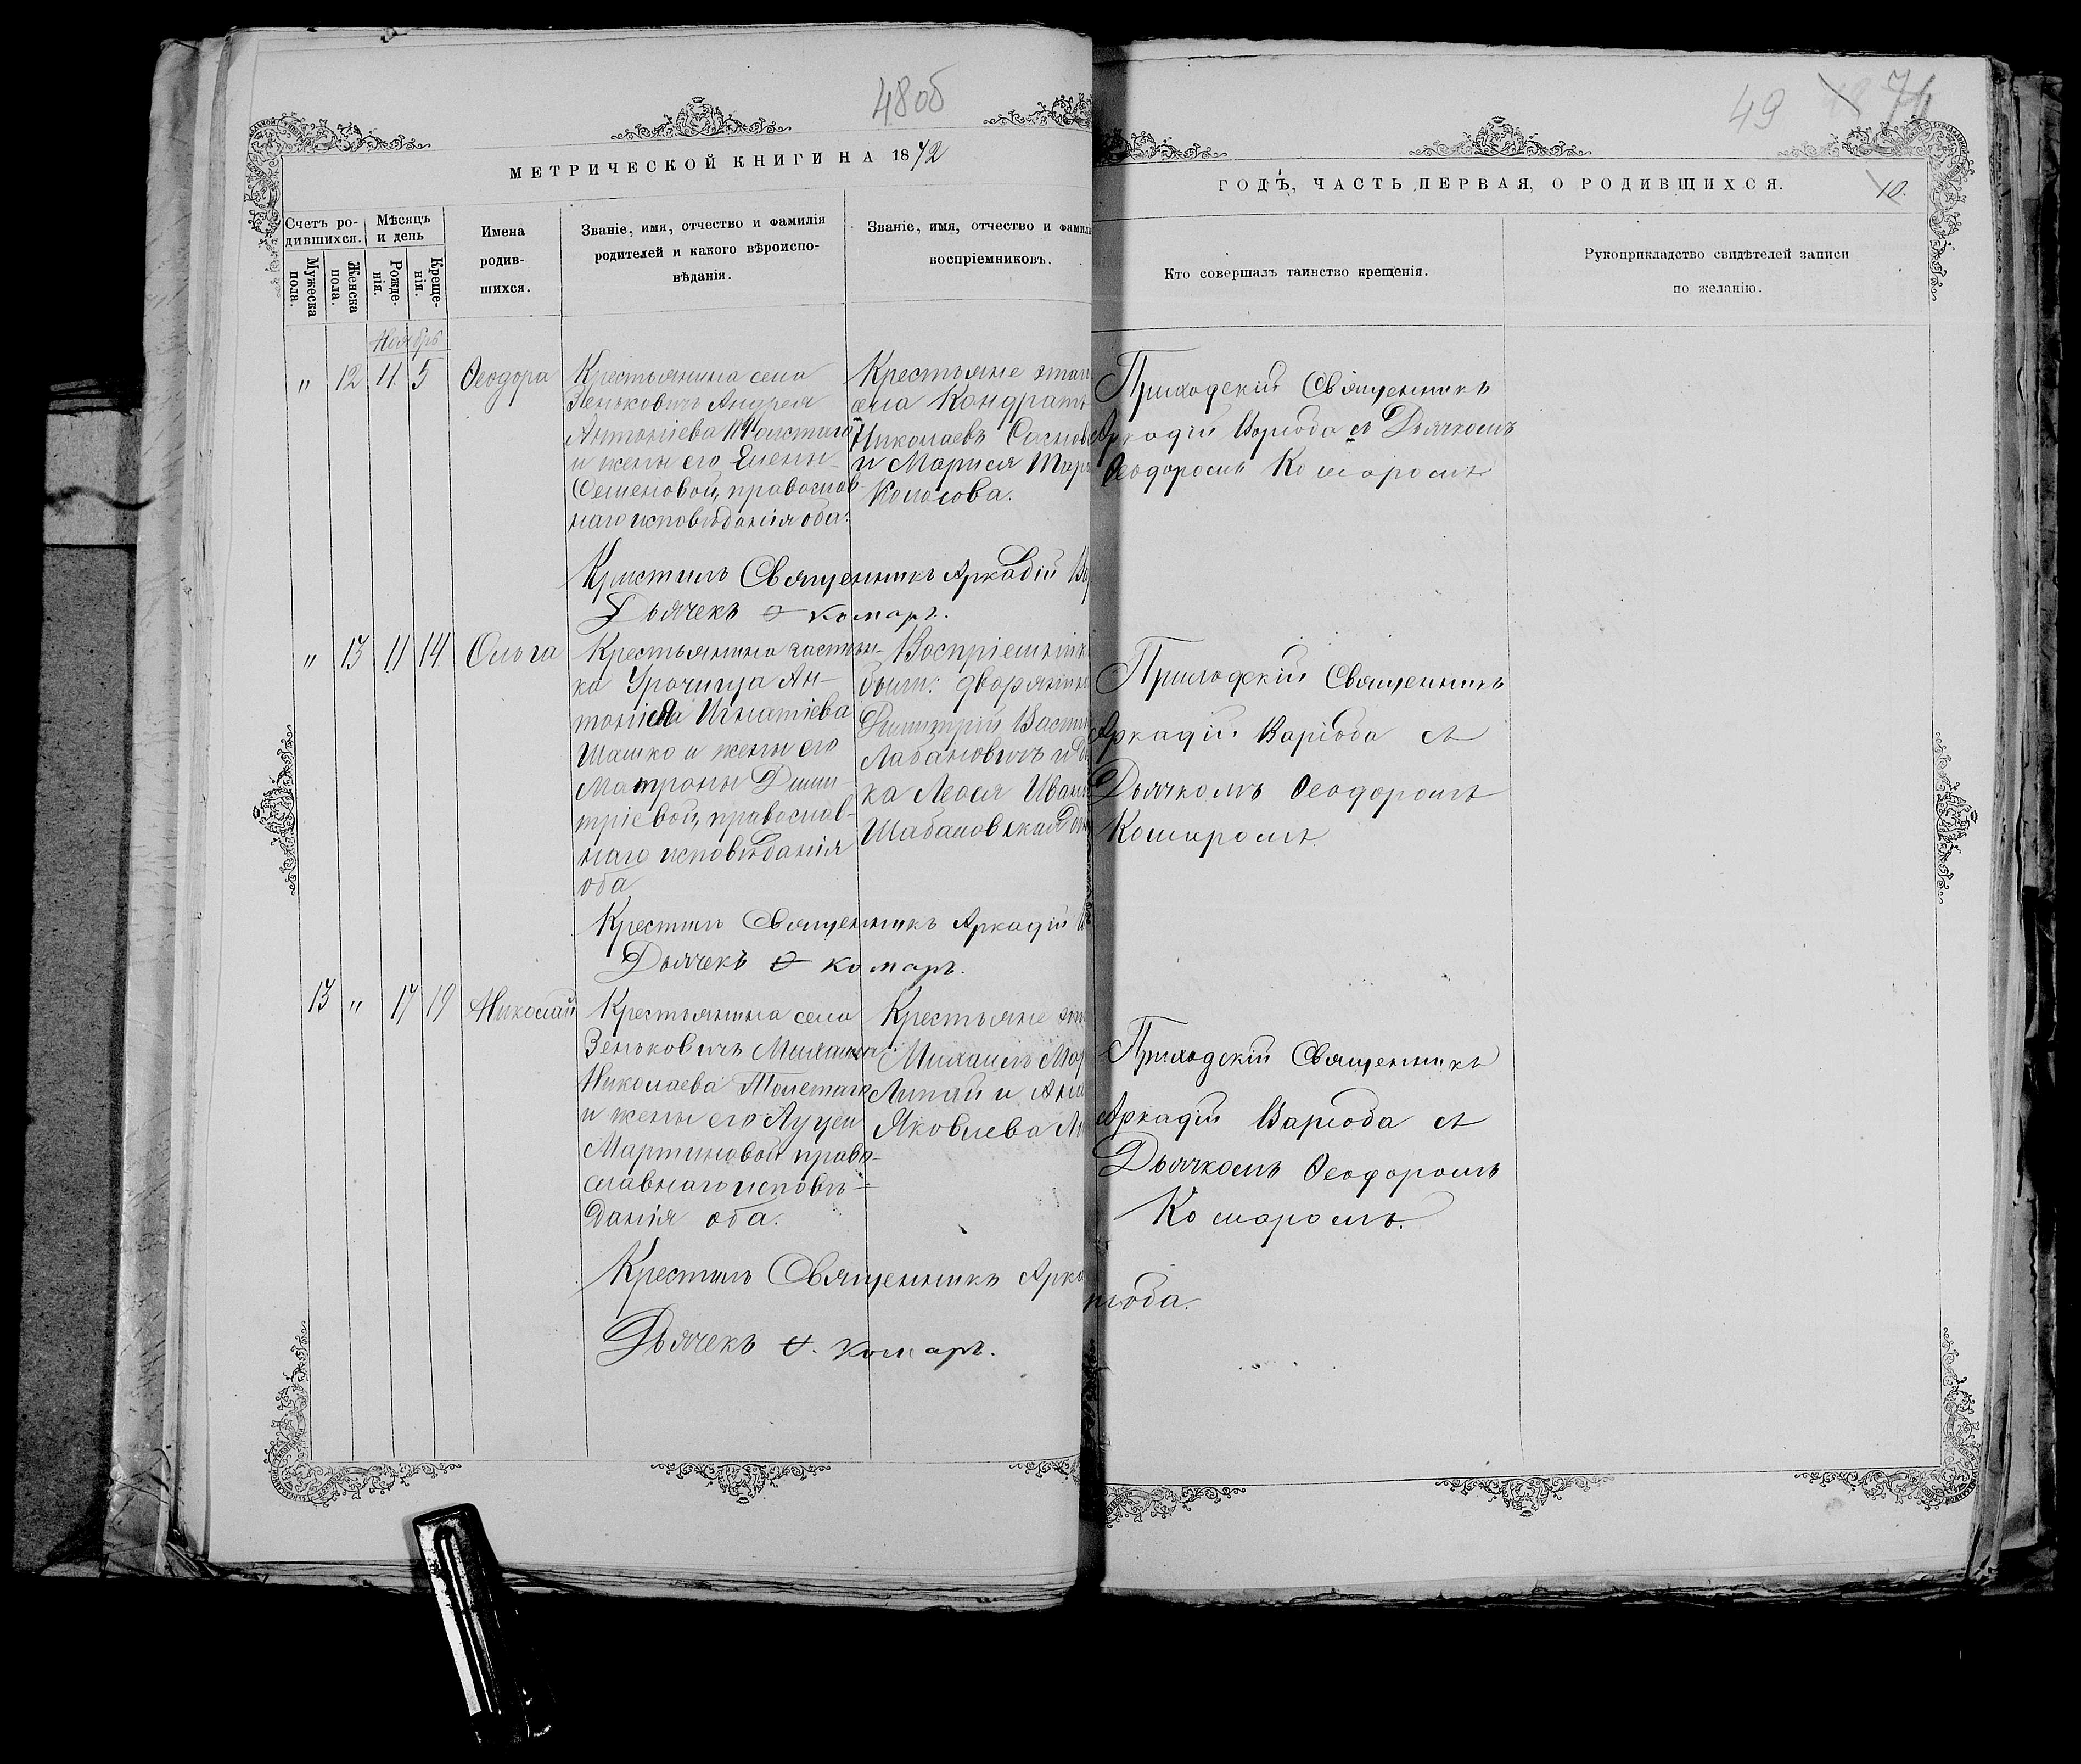 48об
МЕТРИЧЕСКОЙ КНИГИ НА 1872
Счетъ ро-
дившихся.
Мѣсяцъ
и день
Мужеска
пола.
Женска
пола.
Рожде-
нія.
Креще-
нія.
Имена
родив-
шихся.
Званіе, имя, отчество и фамилія
родителей и какого вѣроиспо-
вѣданія.
Званіе, имя, отчество и фамил
воспріемниковъ.
Ноябрь
" 12 4. 5 Ѳеодора
Крестьянина села
Зеньковичъ Андрея
Антоніева Толстаго
и жены его Елены
Семеновой, православ-
наго исповѣданія оба.
Крестьяне этаго
села Кондратъ
Николаевъ
и Марися
Колосова.
Крестилъ Священникъ Аркадій
Дьячекъ Ѳ Комаръ.
" 13 11 14 Ольга
Крестьянина застѣн-
ка Урочища Ан-
тонія Игнатіева
Шашко и жены его
Матроны Дими-
тріевой, православ-
наго исповѣданія
оба
Воспріемник
были: дворянинъ
Димитрій Васил
Лабановичъ и
ка Леося Иван
Шабановская
Крестилъ Священникъ Аркадій
Дьячекъ Ѳ Комаръ.
13 " 17 19 Николай
Крестьянина села
Зеньковичъ Михаила
Николаева Толстаго
и жены его Луцеи
Мартиновой право-
славнаго исповѣ-
данія оба.
Крестьяне эт
Михаилъ Мар
Липай и Ан
Яковлева
Крестилъ Священникъ Арка
Дьячекъ Ѳ. Комаръ.
49
71
ГОДЪ, ЧАСТЬ ПЕРВАЯ, О РОДИВШИХСЯ.
10.
Кто совершалъ таинство крещенія.
Рукоприкладство свидѣтелей записи
по желанію.
Приходскій Священникъ
Аркадій Варгода съ Дьячкомъ
Ѳеодоромъ Комаромъ
Приходскій Священникъ
Аркадій Варгода съ
Дьячкомъ Ѳеодоромъ
Комаромъ.
Приходскій Священникъ
Аркадій Варгода съ
Дьячкомъ Ѳеодоромъ
Комаромъ.
ргода.